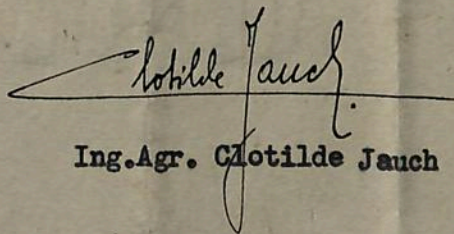 Clotilde Jauch.
Ing.Agr. Clotilde Jauch